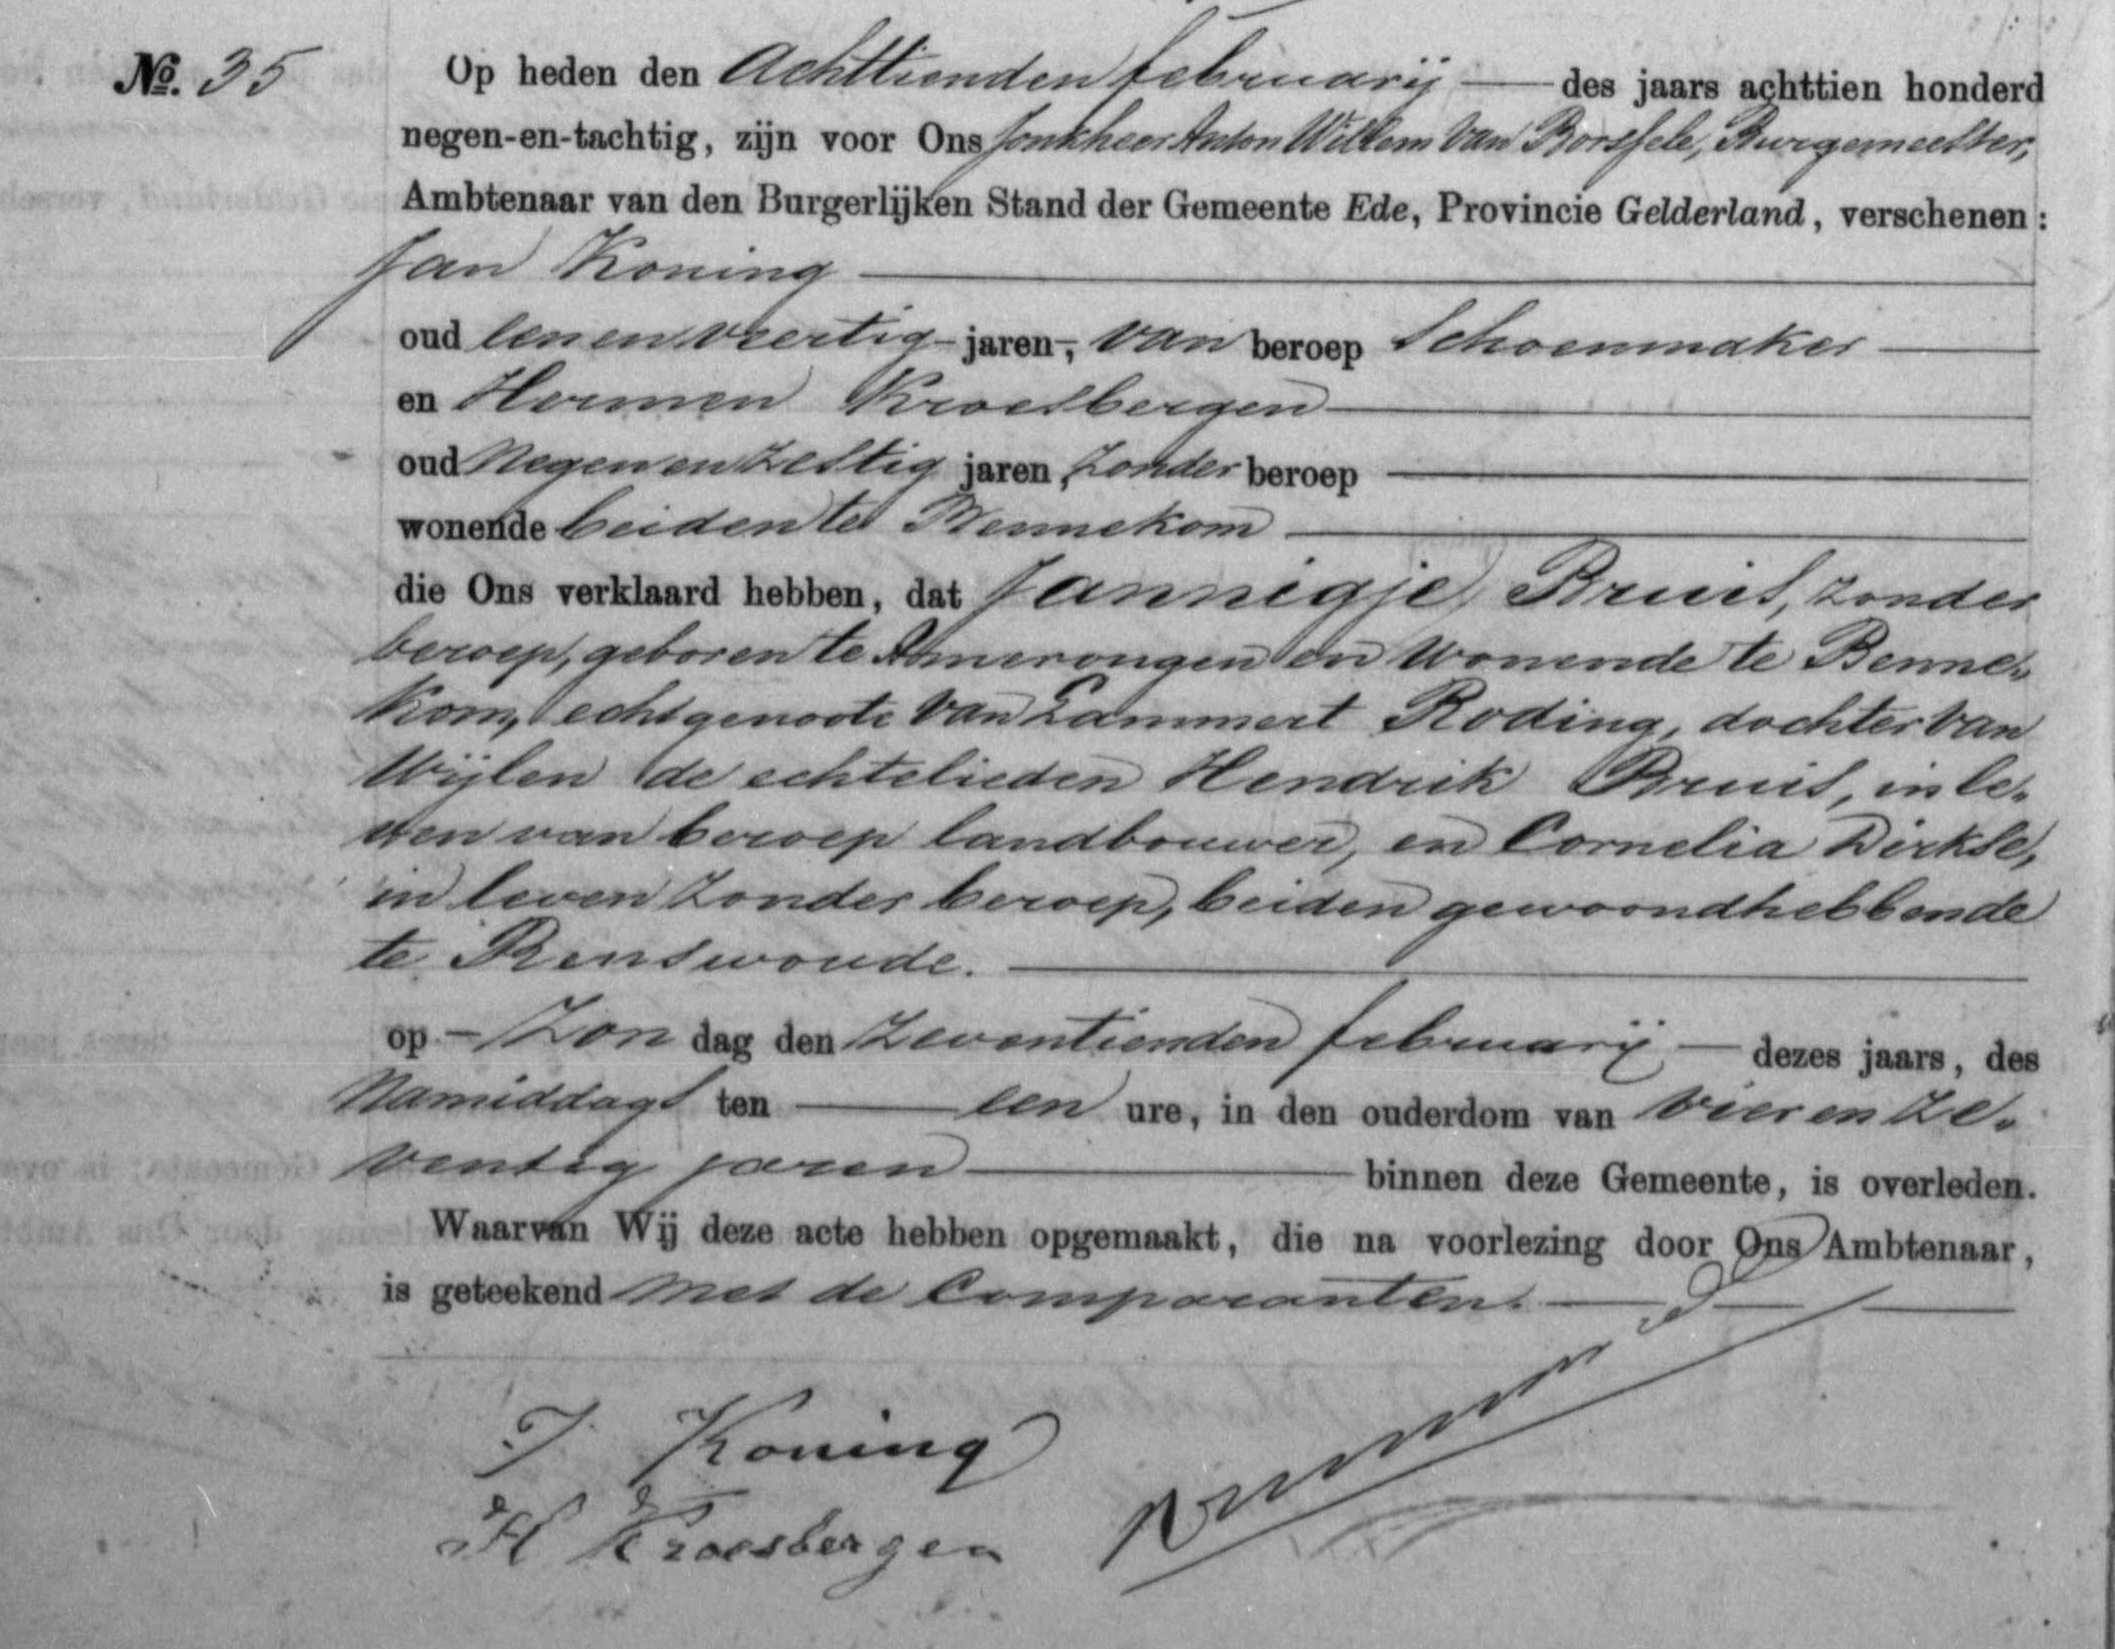 No. 35
Op heden den Achttienden februarij des jaars achttien honderd
negen-en-tachtig, zijn voor Ons Jonkheer Anton Willem van Borssele, Burgemeester,
Ambtenaar van den Burgerlijken Stand der Gemeente Ede, Provincie Gelderland, verschenen:
Jan Koning
oud eenenveertig jaren, van beroep Schoenmaker
en Hermen Kroesbergen
oud Negenenzestig jaren, zonder beroep
wonende beiden te Bennekom
die Ons verklaard hebben, dat Jannigje Bruis, zonder
beroep, geboren te Amerongen en wonende te Benne-
kom, echtgenoote van Lammert Roding, dochter van
Wijlen de echtelieden Hendrik Bruis, in le-
ven van beroep landbouwer, en Cornelia Dirkse,
in leven zonder beroep, beiden gewoondhebbende
te Renswoude.
op Zon dag den zeventienden februarij dezes jaars, des
Namiddags ten een ure, in den ouderdom van vier en ze-
ventig jaren binnen deze Gemeente, is overleden.
Waarvan Wij deze acte hebben opgemaakt, die na voorlezing door Ons Ambtenaar,
is geteekend met de Comparanten.
J Koning
H Kroesbergen